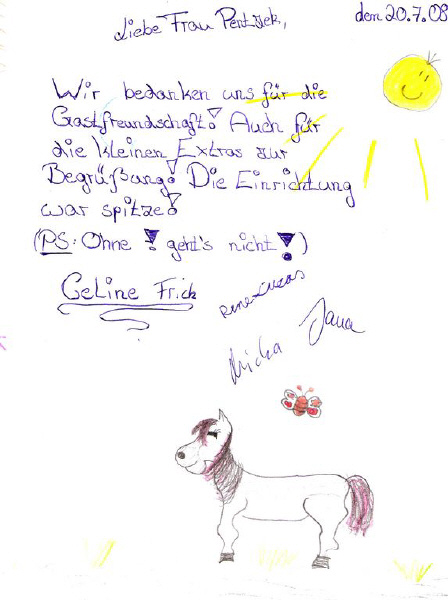 den 20.7.08
Liebe Frau Pentzek,
Wir bedanken uns für die
Gastfreundschaft! Auch für
die kleinen Extras zur
Begrüßung! Die Einrichtung
war spitze!
(PS: Ohne ! geht's nicht!)
Celine Frick
Rene+Lucas
Jana
Micha